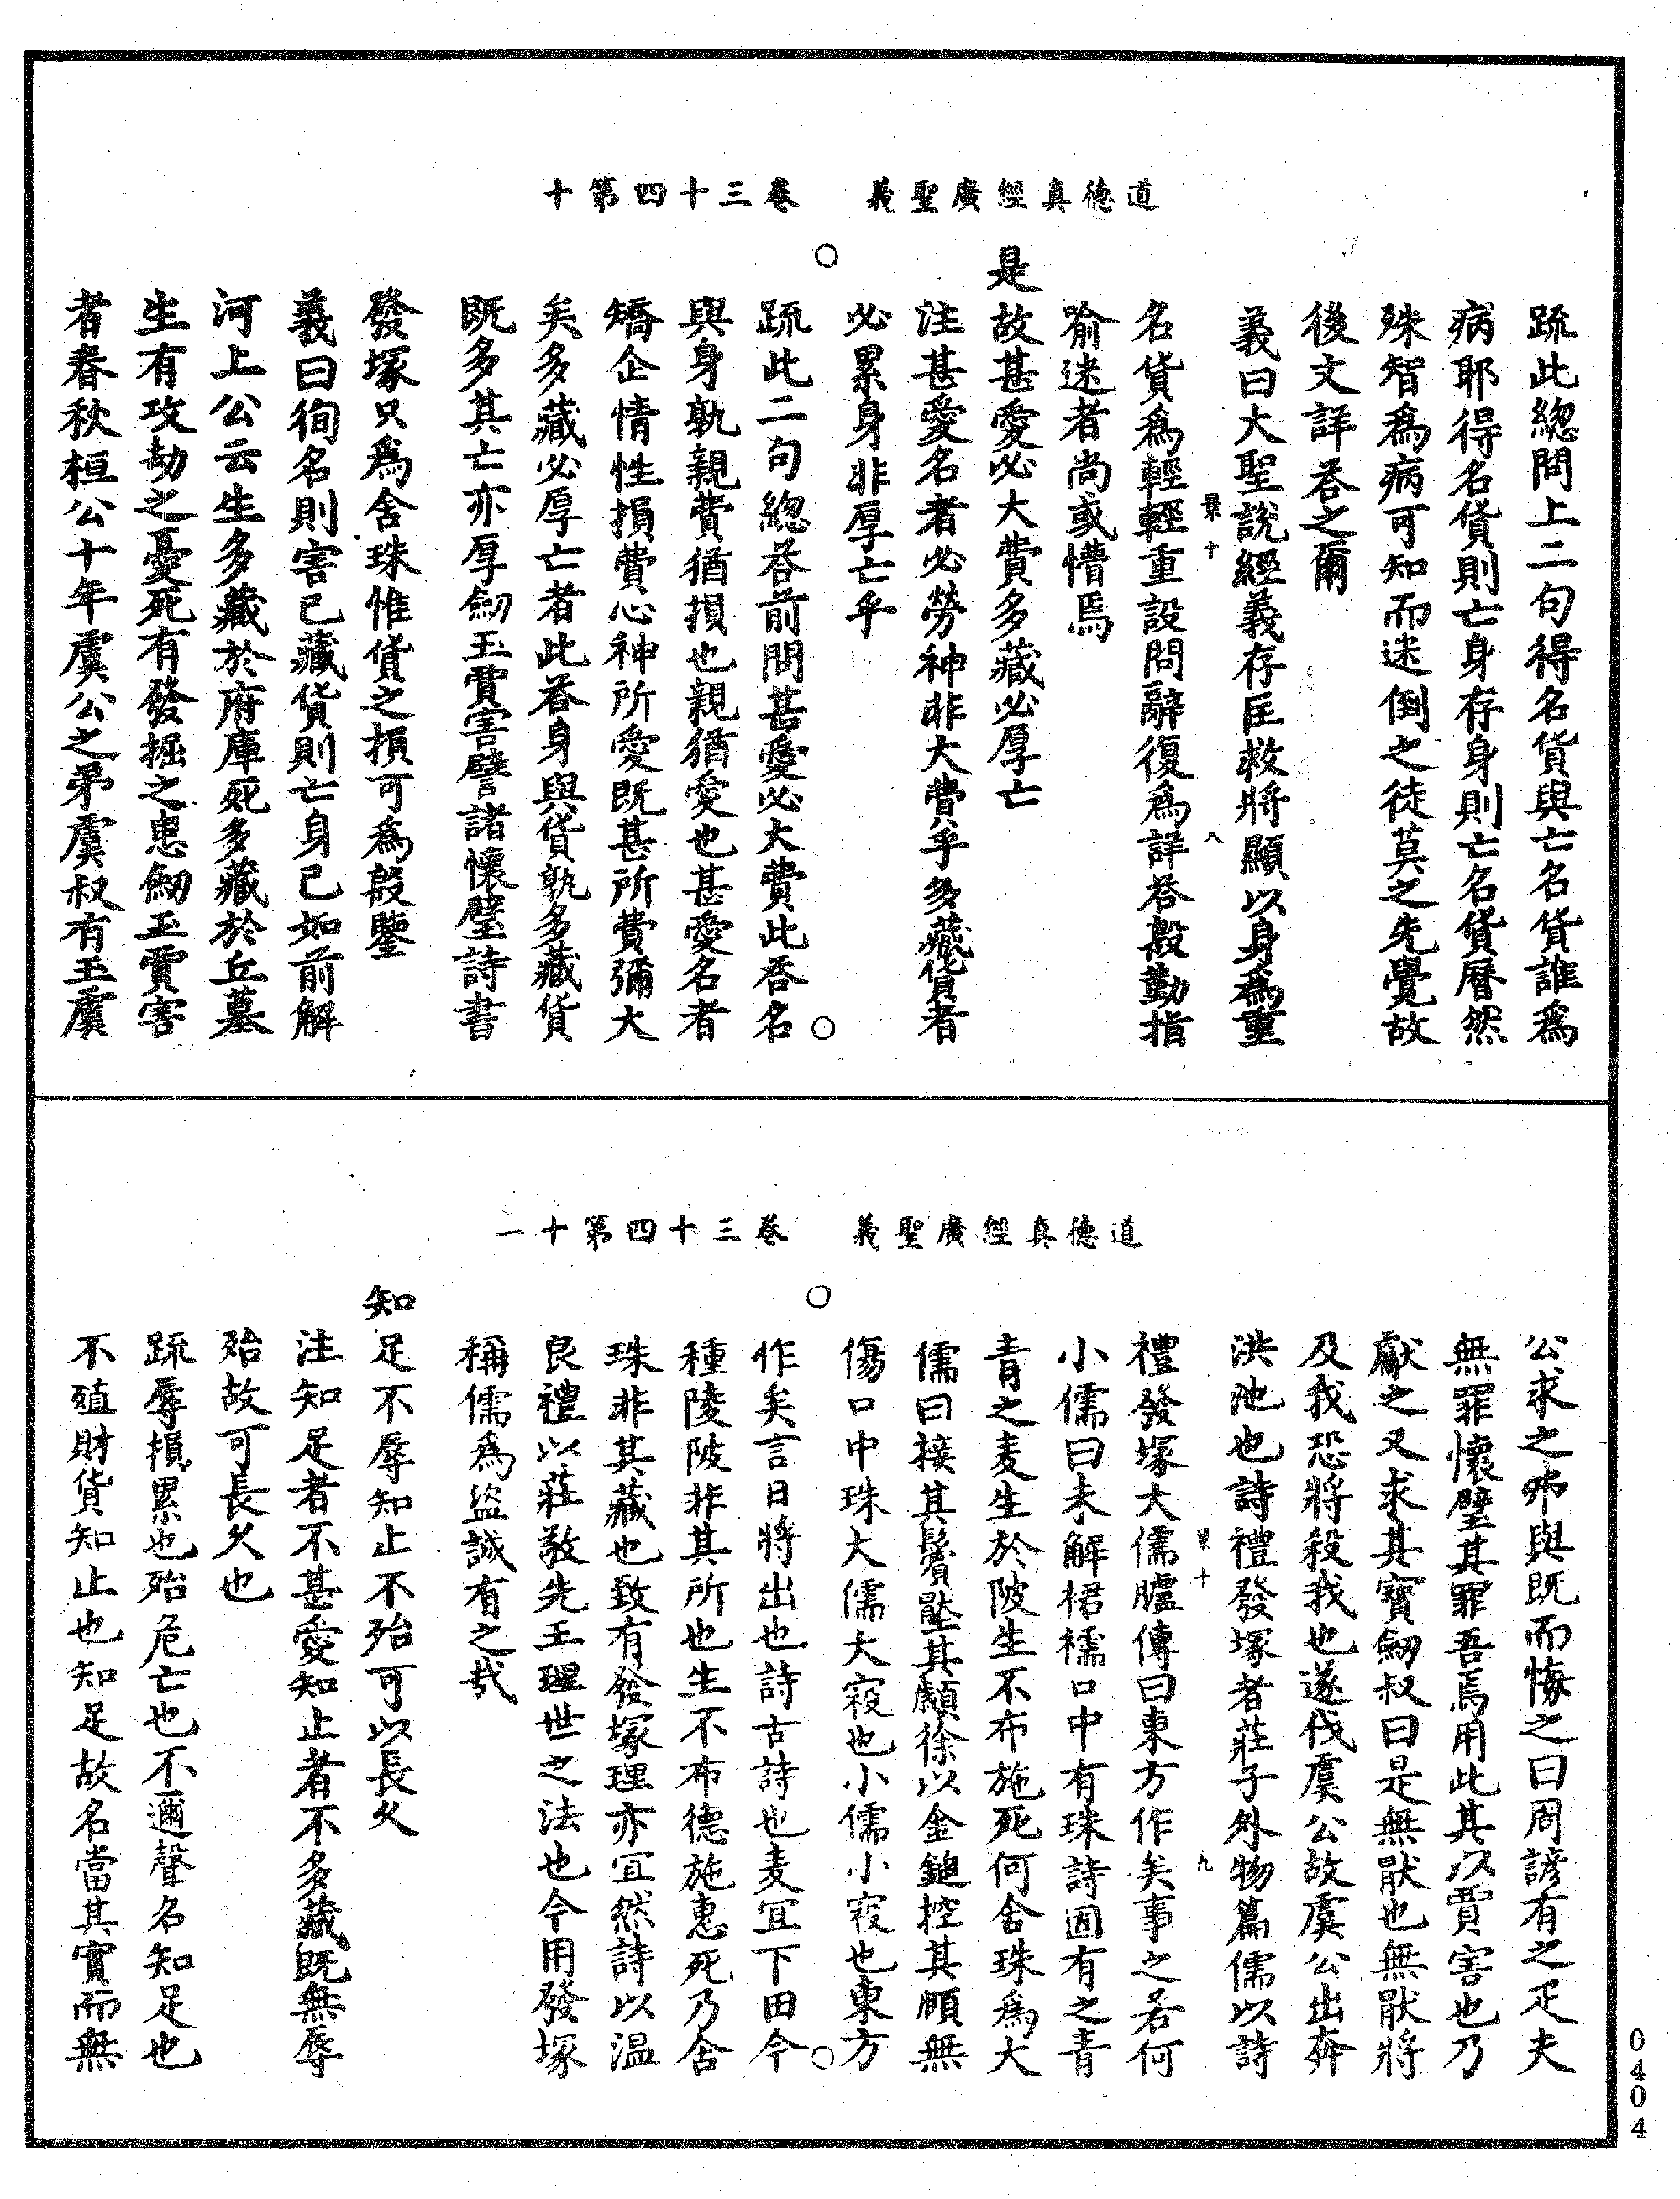 道德真經廣聖義　卷三十四第十
疏此緫問上二句得名貨與亡名貨誰爲
病耶得名貨則亡身存身則亡名貨曆然
殊智爲病可知而迷倒之徒莫之先覺故
後文詳荅之爾
義曰大聖說經義存匡救將顯以身爲重
景十　八
名貨爲輕輕重設問辭復爲詳荅殷勤指
喻迷者尚或懵焉
是故甚愛必大費多藏必厚亡
注甚愛名者必勞神非大費乎多藏貨者
必累身非厚亡乎
疏此二句緫荅前問甚愛必大費此荅名
與身孰親費猶損也親猶愛也甚愛名者
矯企情性損費心神所愛既甚所費彌大
矣多藏必厚亡者此荅身與貨孰多藏貨
既多其亡亦厚劒玉賈害譬諸懷璧詩書
發塚只爲舍珠惟貨之損可爲殷鑒
義曰徇名則害己藏貨則亡身已如前解
河上公云生多藏於府庫死多藏於丘墓
生有攻劫之憂死有發掘之患劒玉賈害
者春秋桓公十年虞公之弟虞叔有玉虞
道德真經廣聖義　卷三十四第十一
公求之弗與既而悔之曰周諺有之疋夫
無罪懷璧其罪吾焉用此其以賈害也乃
獻之又求其寶劒叔曰是無猒也無猒將
及我恐將殺我也遂伐虞公故虞公出奔
洪池也詩禮發塚者莊子外物篇儒以詩
景十　九
禮發塚大儒臚傳曰東方作矣事之若何
小儒曰未解裙襦口中有珠詩固有之青
青之麦生於陂生不布施死何舍珠爲大
儒曰接其鬢壓其顪徐以金鎚控其頤無
傷口中珠大儒大寇也小儒小寇也東方
作矣言日將出也詩古詩也麦宜下田今
種陵陂非其所也生不布德施惠死乃舍
珠非其藏也致有發塚理亦宜然詩以温
良禮以莊敬先王理世之法也今用發塚
稱儒爲盜誠有之哉
知足不辱知止不殆可以長久
注知足者不甚愛知止者不多藏既無辱
殆故可長久也
疏辱損累也殆危亡也不邇聲名知足也
不殖財貨知止也知足故名當其實而無
0404